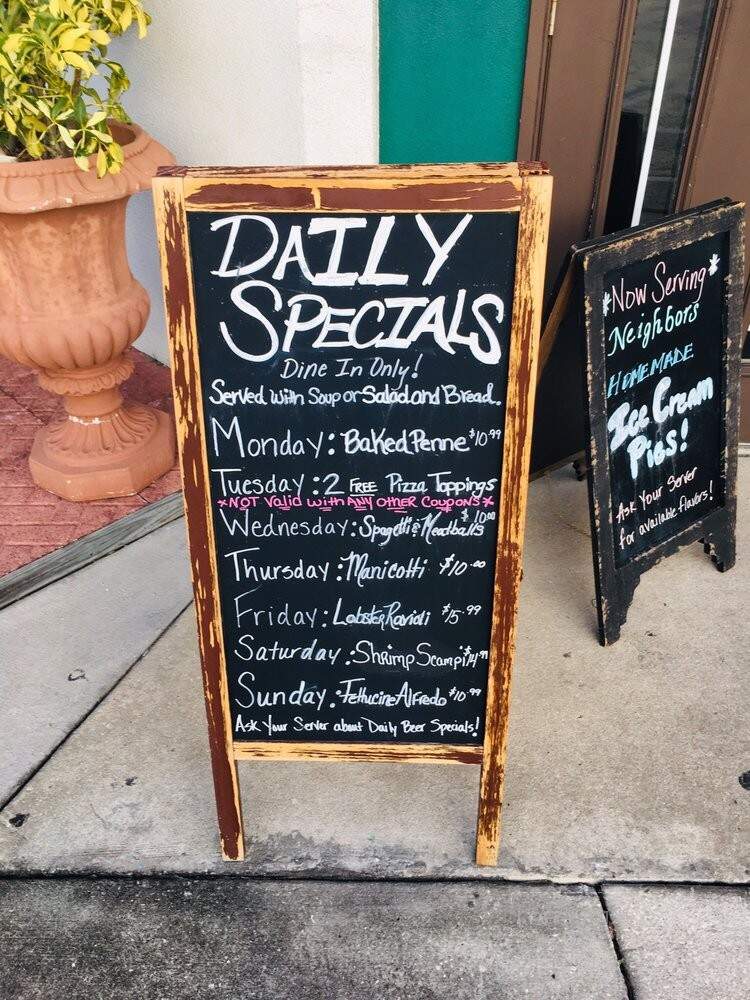 DAILY
SPECIALS
Dine In Only!
Served with Soup or Salad and Bread.
Monday: Baked Penne $10.99
Tuesday: 2 FREE Pizza Toppings
*NOT Valid with ANY other Coupons*
Wednesday: Spagetti & Meatballs $10.00
Thursday: Manicotti $10.00
Friday: Lobster Ravioli $15.99
Saturday: Shrimp Scampi $14.99
Sunday: Fettucine Alfredo $10.99
Ask Your Server about Daily Beer Specials!
*Now Serving*
Neighbors
HOMEMADE
Ice Cream
Pies!
Ask Your Server
for available flavors!